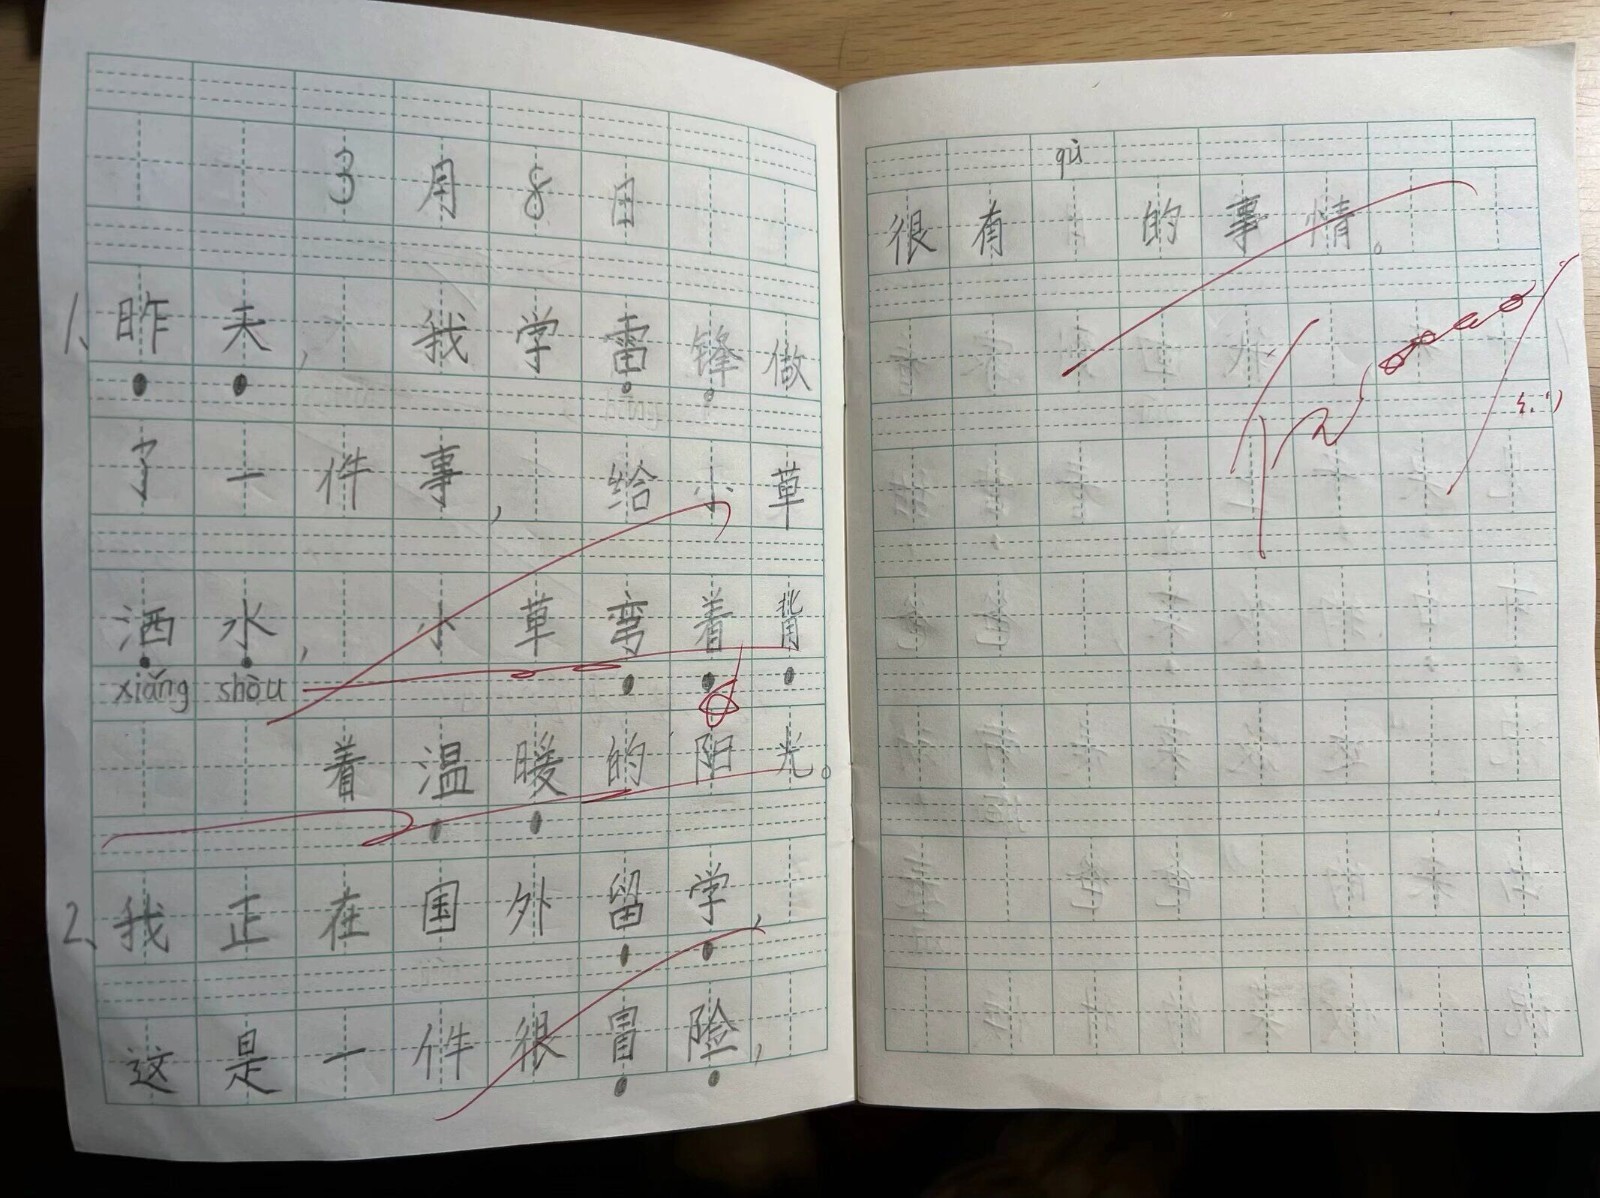 3月8日
1、昨天,我学雷锋做
了一件事,给小草
洒水,小草弯着背
xiǎng shòu
着温暖的阳光。
2、我正在国外留学,
这是一件很冒险,
qù
很有 的事情。